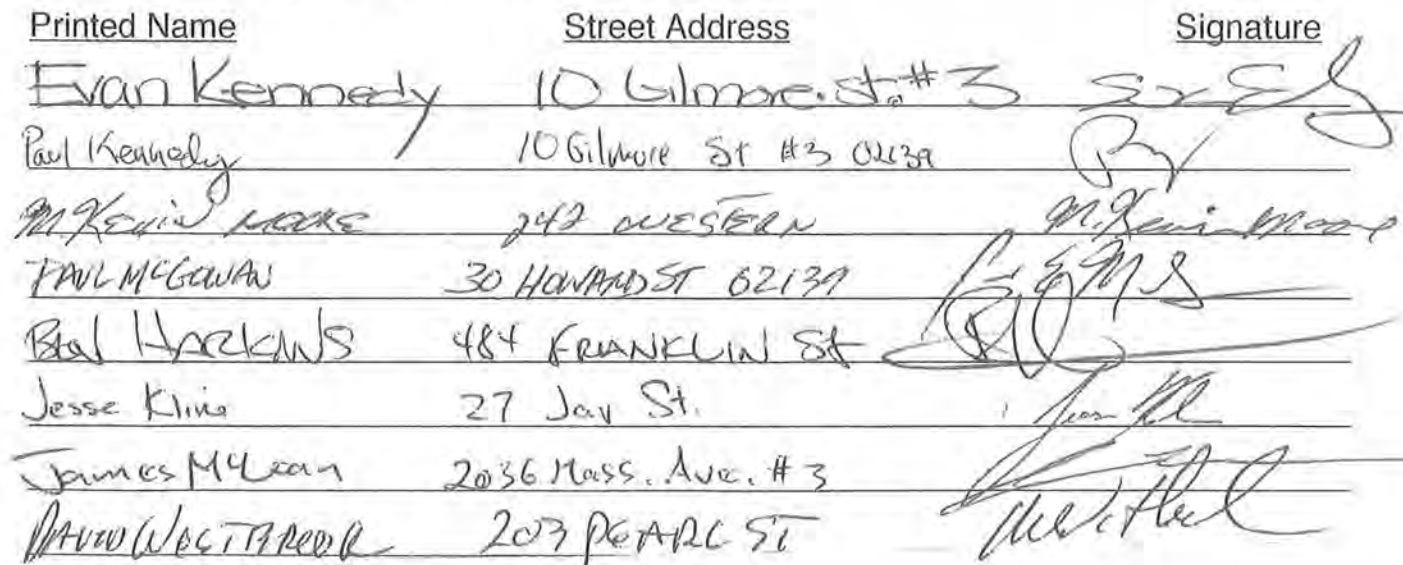 Printed Name Street Address Signature
Evan Kennedy 10 Gilmore St. #3
Paul Kennedy 10 Gilmore St #3 02139
M. Kevin MOORE 242 WESTERN M. Kevin Moore
PAUL MCGOWAN 30 HOWARD ST 02139
HARKINS 484 FRANKLIN St
Jesse Kline 27 Jay St.
James McLean 2036 Mass. Ave. #3
DAVID 203 PEARL ST